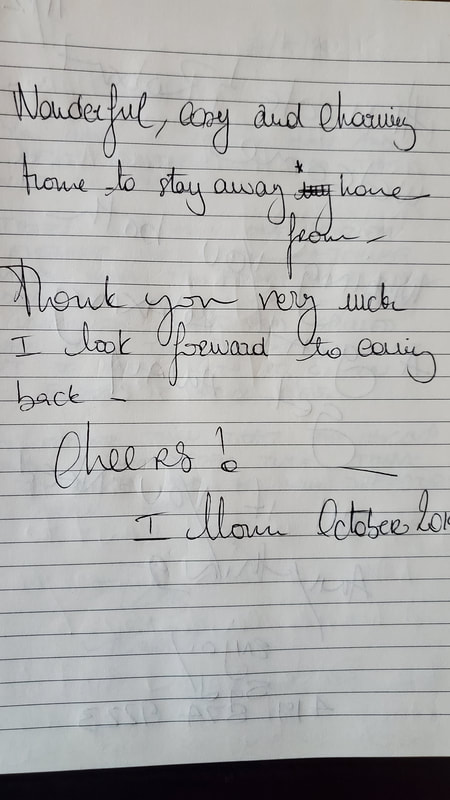 Wonderful, cosy and charming
home to stay away * home
from -
Thank you very much
I look forward to coming
back -
Cheers !
I October 201